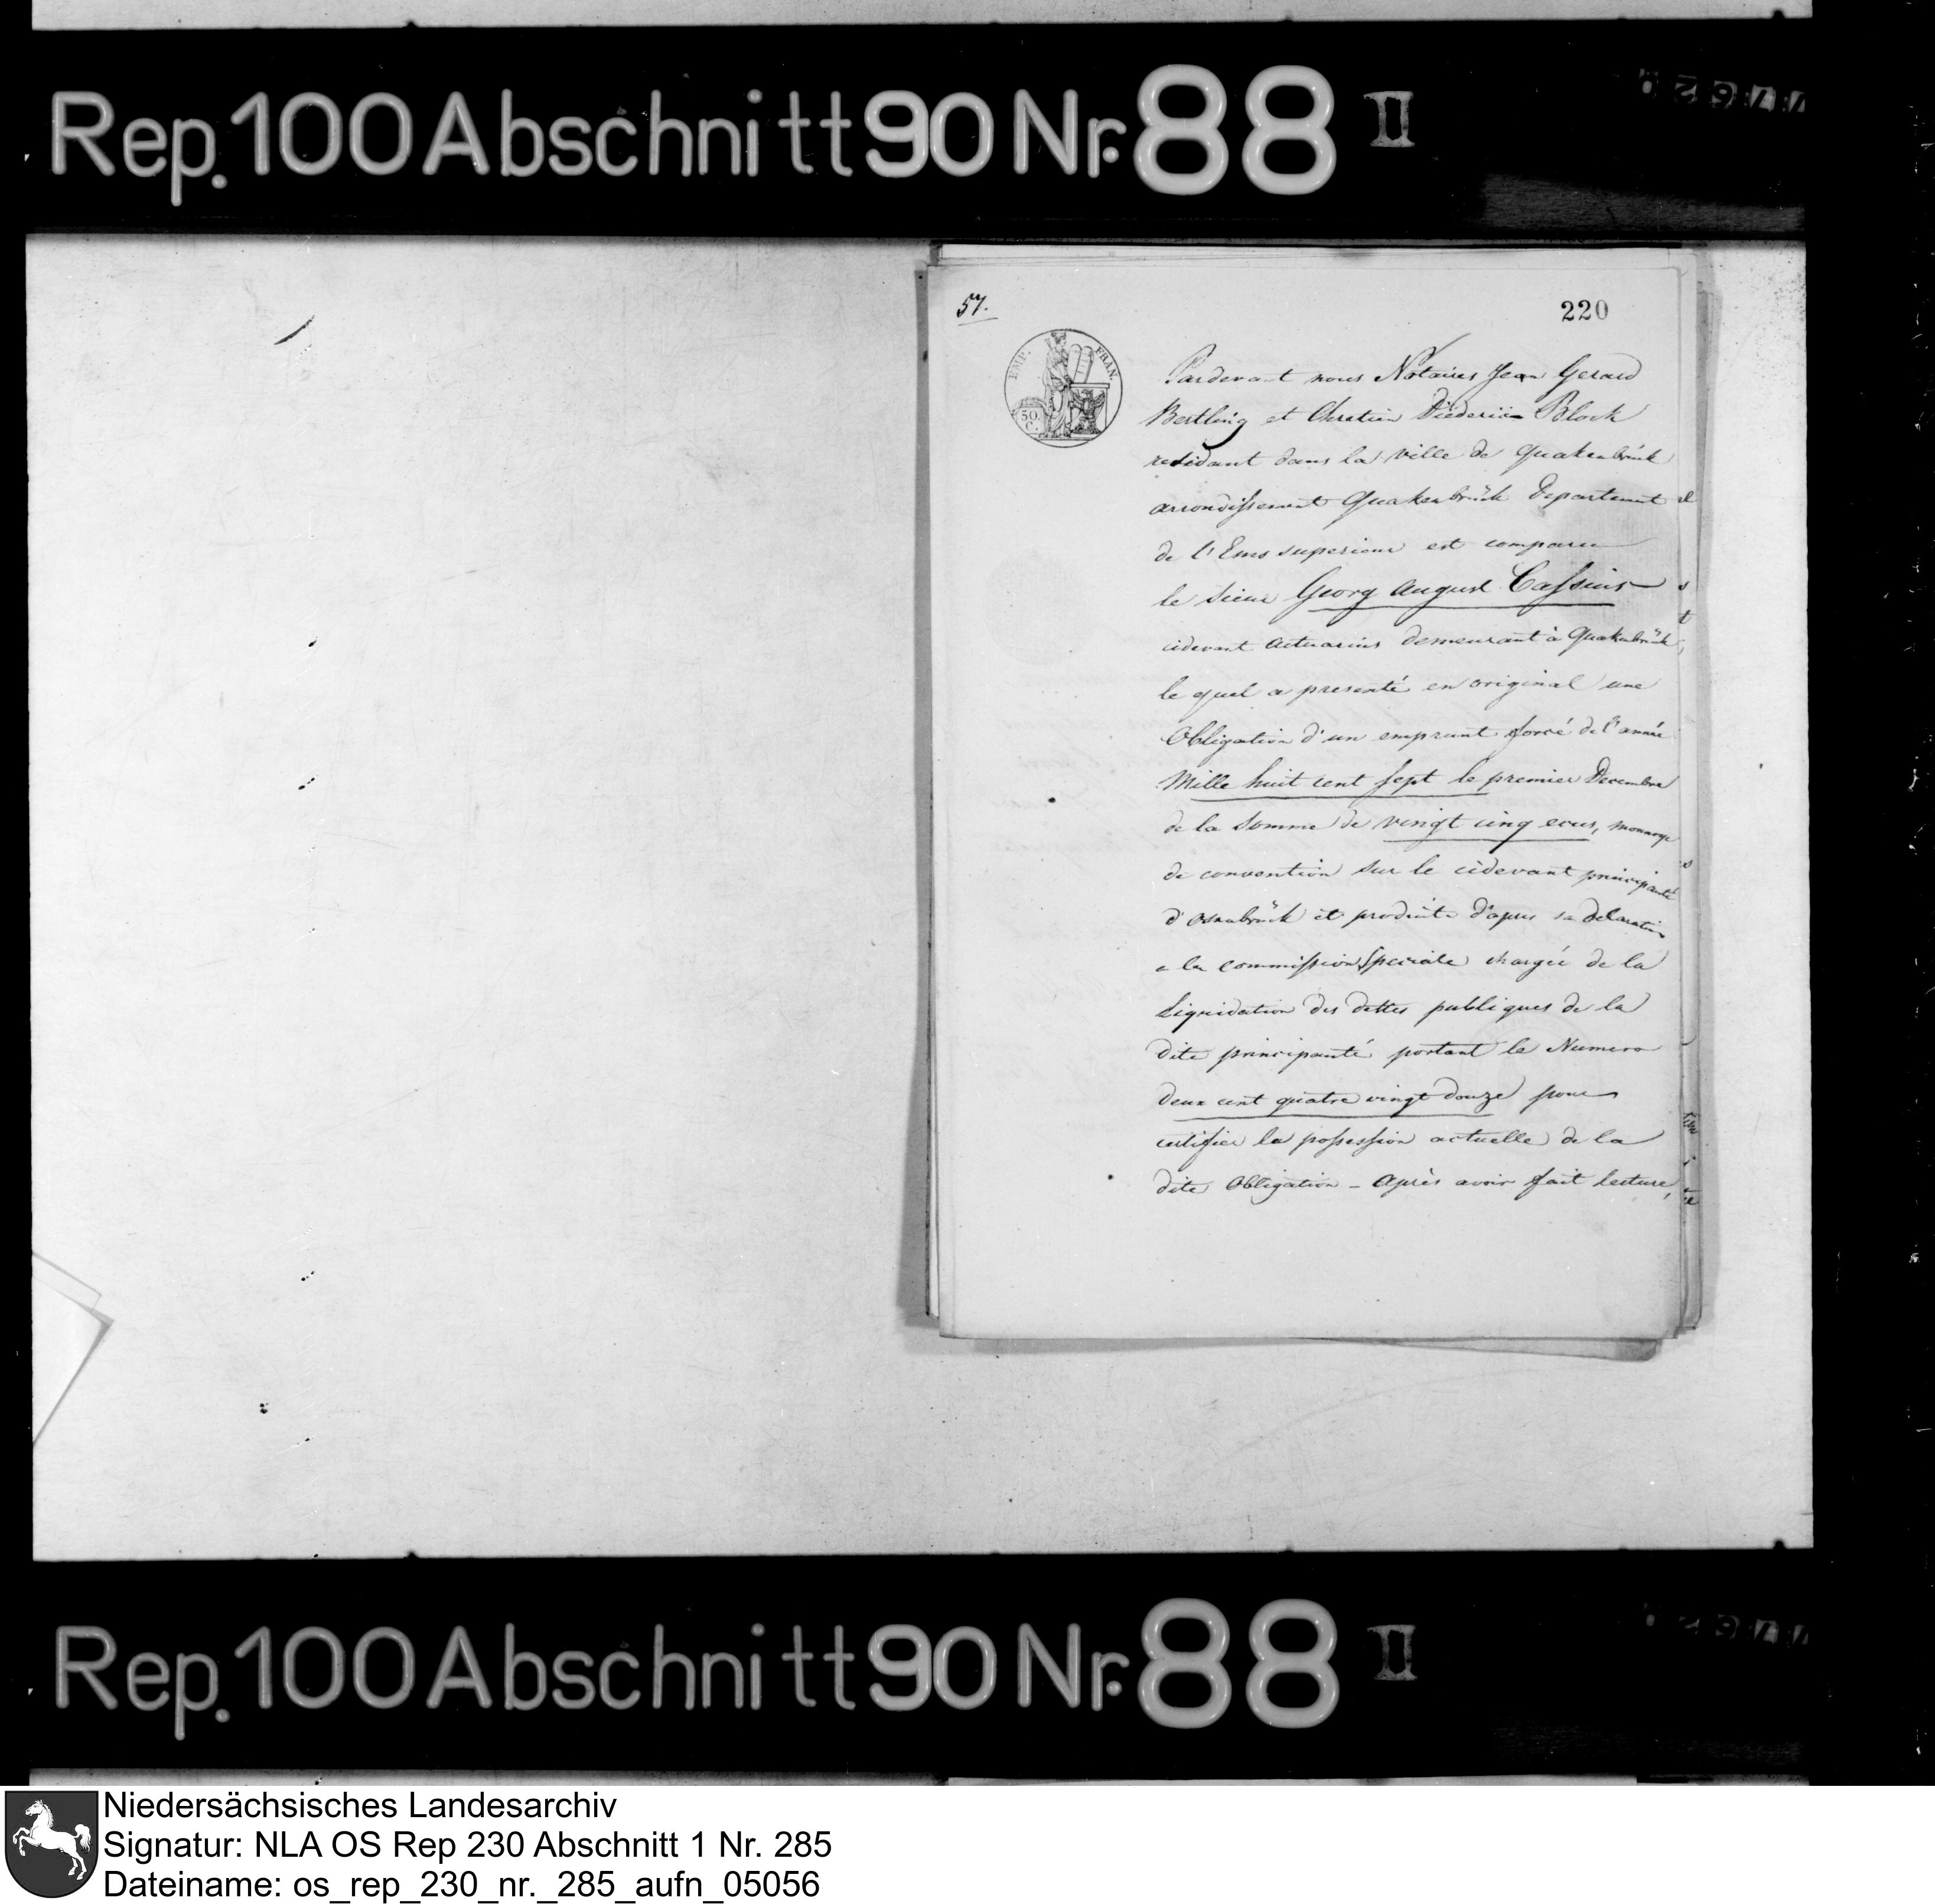 Rep. 100 Abschnitt 90 Nr. 88 II
57.
220
EMP. FRAN.
50. C.
Pardevant nous Notaires Jean Gerard
Bertling et Chretien Diederich Block
residant dans la ville de Quakenbrück
arrondissement Quakenbrück Departement
de l'Ems superieur est comparu
le Sieur Georg August Cassius
cidevant actuarius demeurant à Quakenbrück,
le quel a presenté en original une
Obligation d'un emprunt forcé de l'année
Mille huit cent sept le premier Decembre
de la Somme de vingt cinq ecus, monnoye
de convention sur le cidevant principauté
d'Osnabrück et produite d'apres sa declaration
a la commission speciale chargée de la
Liquidation des dettes publiques de la
dite principauté portant le Numero
deux cent quatre vingt douze pour
certifier la possession actuelle de la
dite Obligation – Après avoir fait lecture,
Rep. 100 Abschnitt 90 Nr. 88 II
Niedersächsisches Landesarchiv
Signatur: NLA OS Rep 230 Abschnitt 1 Nr. 285
Dateiname: os_rep_230_nr._285_aufn_05056